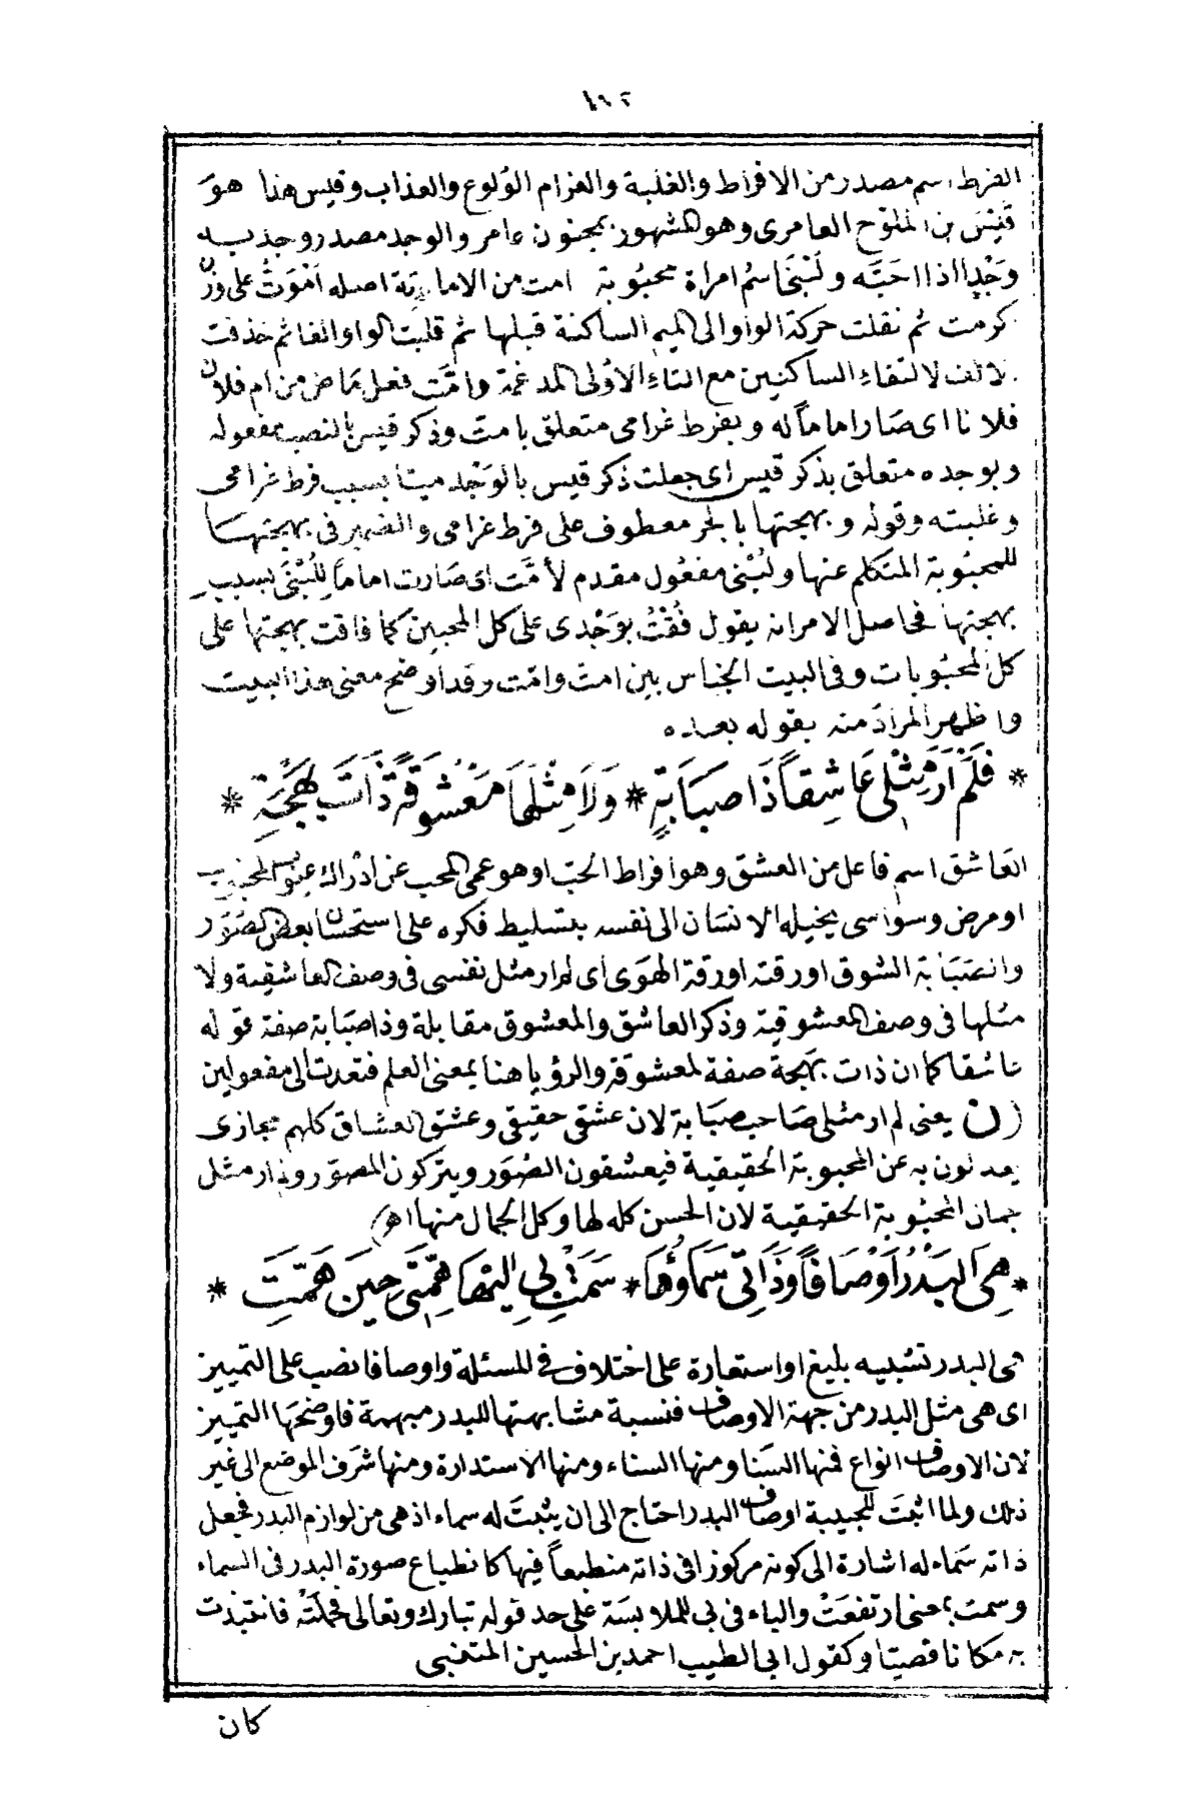 ١٠٢
الفرط اسم مصدر من الافراط والغلبة والغرام الوُلوع والعذاب وقيس هذا هوَ
قَيْسَ بن الملوّح العامرى وهو المشهور بمجنون عامر والوجد مصدر وجد به
وَجْدا اذا احَبَّه ولُبْنَى اسمُ امراة محبُوبة امت من الاماتة اصله اَمْوَتُ على وزن
كرمت ثم نقلت حركة الواو الى الميم الساكنة قبلها ثم قلبت الواو الفا ثم حذفت
الالف لالتقاءِ الساكنين مع التاءِ الاُولى المدغمة وامَّت فعل ماض من ام فلان
فلانا اى صَار اماماً له وبفرط غرامى متعلق بامت وذكر قيس بالنصب مفعوله
وبوجده متعلق بذكر قيس اى جعلت ذكر قيس بالوَجْد ميتا بسبب فرط غرامى
وغلبته وقوله وبهجتها بالجر معطوف على فرط غرامى والضمير فى بهجتهَا
للمحبُوبة المتكلم عنها ولُبْنى مفعُول مقدم لأمَّت اى صَارت اماماً لِلُبْنَى بسبب
بهجتها فحاصل الامر انه يقول فُقْتُ بوَجْدى على كل المحبين كما فاقت بهجتها على
كل المحبُوبات وفى البيت الجناس بين امت وامّت وقد اوضح معنى هذا البيت
واظهر المرادَ منه بقوله بعده
* فَلَمْ اَرَ مِثْلِى عَاشِقاً ذَا صَبَابَةٍ * وَلَا مِثْلَهَا مَعْشُوقَةً ذَاتَ بَهْجَةِ *
العَاشق اسم فاعل من العشق وهو افراط الحبّ او هو عمى المحب عن ادْراك عيُوب المحبُوب
او مرض وسواسى يخيله الانسَان الى نفسه بتسليط فكره على استحسَان بعض الصُوَر
والصَبَابة الشوق او رقته او رقة الهَوَى اى لم ار مثل نفسى فى وصف العاشقية ولا
مثلها فى وصف المعشوقية وذكر العاشق والمعشوق مقابلة وذا صَبَابة صفة قوله
عاشقا كما ان ذات بَهجة صفة لمعشوقة والرؤيا هنا بمعنى العلم فتعدت الى مفعولين
(ن) يعنى لم ار مثلى صَاحب صبَابة لان عشقى حقيقى وعشق العشاق كلهم مجازى
يعدلون به عن المحبوبة الحقيقية فيعشقون الصُوَر ويتركون المصوّر ولم ار مثل
جمال المحبُوبة الحقيقية لان الحسن كله لها وكل الجمال منها اهـ
* هِىَ البَدْرُ اَوْصَافاً وَذَاتِى سَمَاؤُهَا * سَمَتْ بِى اِلَيْهَا هِمَّتِى حِينَ هَمَّتِ *
هى البدر تشبيه بليغ او استعارة على اختلاف فى المسئلة واوصافا نصب على التمييز
اى هى مثل البدر من جهة الاوصاف فنسبة مشابهتها للبدر مبهمة فاوضحَها التمييز
لان الاوصاف انواع فمنها السَنا ومنها السناء ومنها الاستدارة ومنها شرَف الموضع الى غير
ذلك ولما اثبَتَ للحبيبة اوصاف البدر احتاج الى ان يثبتَ له سماء اذ هى من لوازم البدر فجعل
ذاته سَماء له اشارة الى كونه مركوزا فى ذاته منطبعاً فيها كانطباع صورة البدر فى السماء
وسمت بمعنى ارتفعَتْ والباء فى بى للملابسَة على حد قوله تبارك وتعالى فحملَتْه فانتبذت
به مكانا قصيّا وكقول ابى الطيب احمد بن الحسين المتنبى
كان